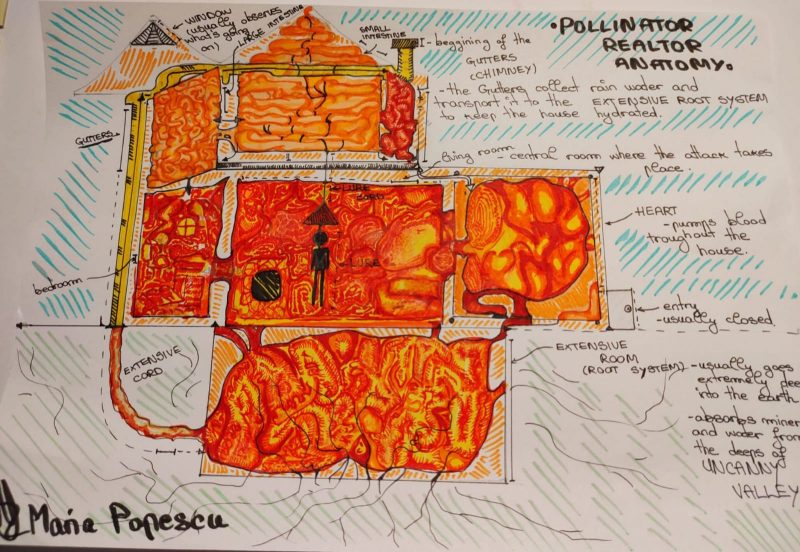 • POLLINATOR
REALTOR
ANATOMY.
WINDOW
(usually observes
what's going
on)
LARGE INTESTINE
SMALL
INTESTINE
- beggining of the
GUTTERS
(CHIMNEY)
- the Gutters collect rain water and
transport it to the EXTENSIVE ROOT SYSTEM
to keep the house hydrated.
GUTTERS
living room - central room where the attack takes
place.
LURE
CORD
LURE
HEART
- pumps blood
troughout the
house.
bedroom
entry
- usually closed.
EXTENSIVE
CORD
EXTENSIVE
ROOM
(ROOT SYSTEM)
- usually goes
extremely dee
into the earth
- absorbs miner
and water from
the deeps of
UNCANNY
VALLEY
Maria Popescu